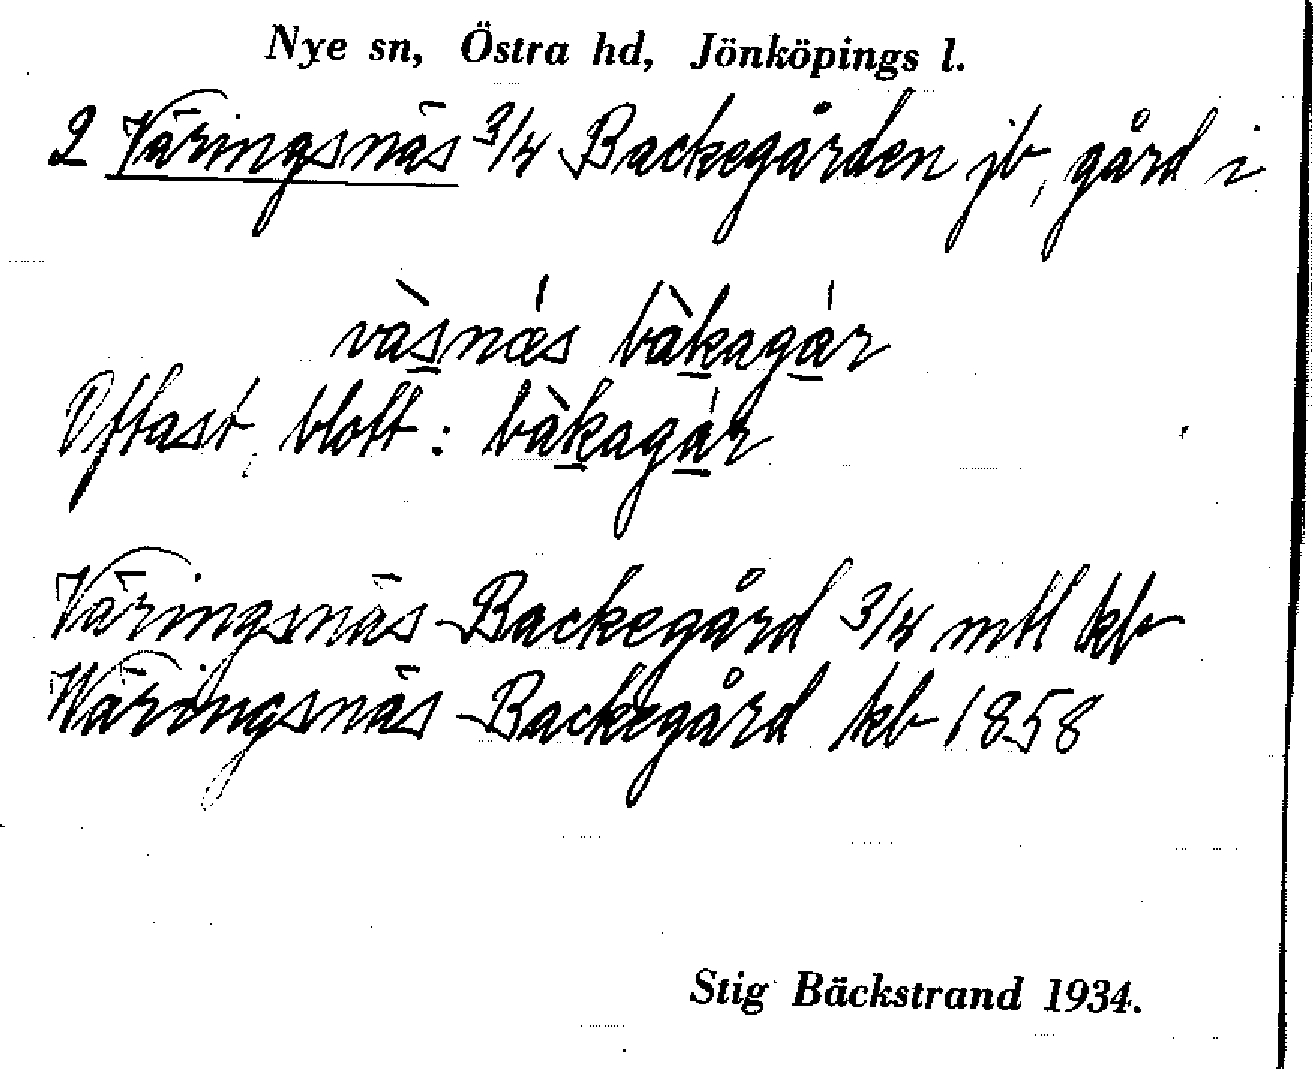 Nye sn, Östra hd, Jönköpings l.
2 Väringsnäs 3/4 Backegården jb, gård i
vàsnæ̀s bàkagár
Oftast blott: bàkagár
Väringsnäs-Backegård 3/4 mtl kb
Wäringsnäs-Backegård kb 1858
Stig Bäckstrand 1934.